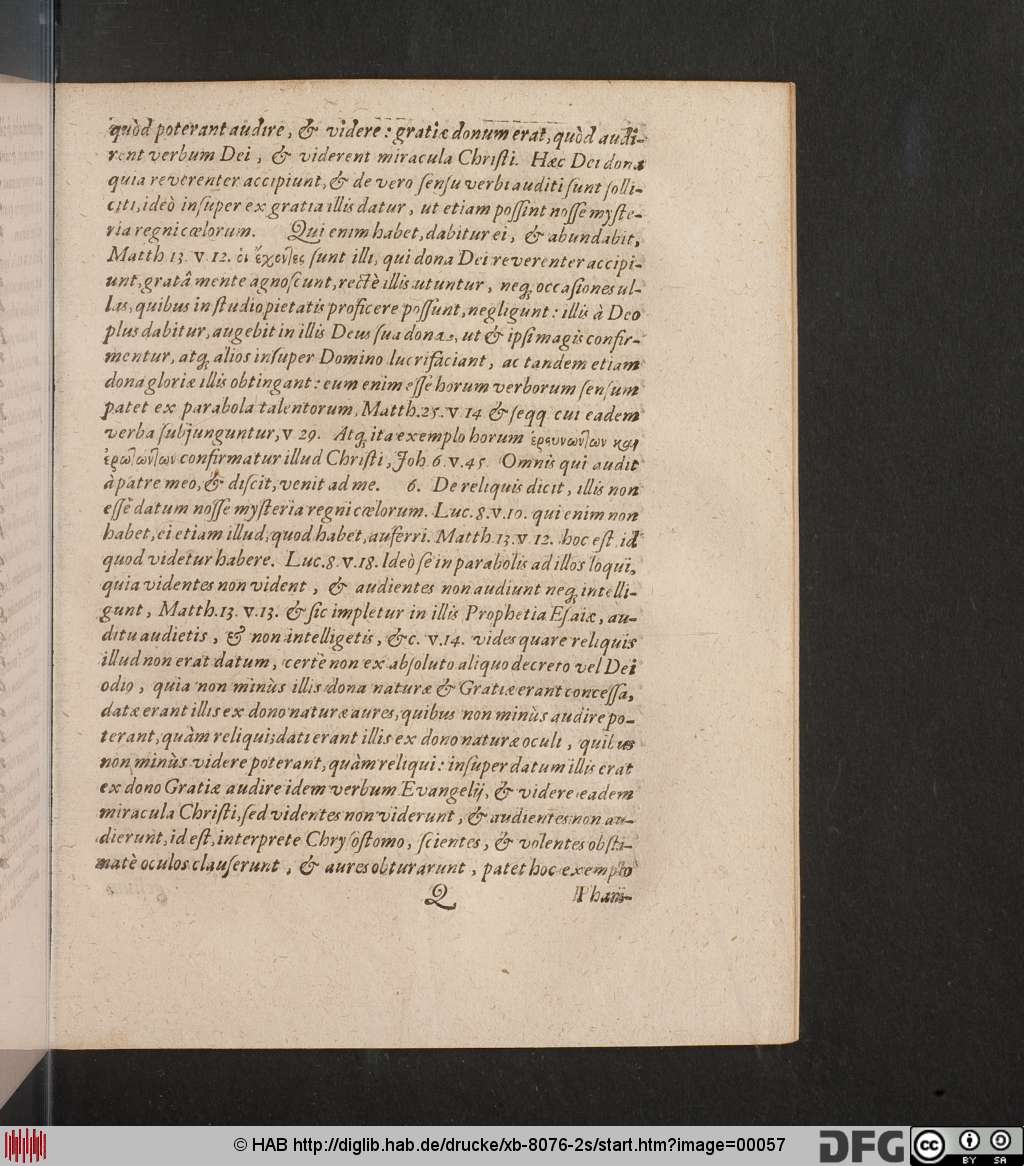 quòd poterant audire, & videre: gratiæ donum erat, quòd audi-
rent verbum Dei, & viderent miracula Christi. Hæc Dei dona
quia reverenter accipiunt, & de vero sensu verbi auditi sunt solli-
citi, ideò insuper ex gratia illis datur, ut etiam possint nosse myste-
ria regni cœlorum. Qui enim habet, dabitur ei, & abundabit,
Matth. 13. v. 12. οἱ ἔχοντες sunt illi, qui dona Dei reverenter accipi-
unt, gratâ mente agnoscunt, rectè illis utuntur, neq; occasiones ul-
las, quibus in studio pietatis proficere possunt, negligunt: illis à Deo
plus dabitur, augebit in illis Deus sua dona, ut & ipsi magis confir-
mentur, atq; alios insuper Domino lucrifaciant, ac tandem etiam
dona gloriæ illis obtingant: eum enim esse horum verborum sensum
patet ex parabola talentorum, Matth. 25. v. 14 & seqq cui eadem
verba subjunguntur, v 29. Atq; ita exemplo horum ἐρευνώντων και
ἐρωτώντων confirmatur illud Christi, Joh. 6. v. 45. Omnis qui audit
à patre meo, & discit, venit ad me. 6. De reliquis dicit, illis non
esse datum nosse mysteria regni cœlorum. Luc. 8. v. 10. qui enim non
habet, ei etiam illud, quod habet, auferri. Matth. 13. v. 12. hoc est, id
quod videtur habere. Luc. 8. v. 18. Ideò se in parabolis ad illos loqui,
quia videntes non vident, & audientes non audiunt neq; intelli-
gunt, Matth. 13. v. 13. & sic impletur in illis Prophetia Esaiæ, au-
ditu audietis, & non intelligetis, &c. v. 14. vides quare reliquis
illud non erat datum, certè non ex absoluto aliquo decreto vel Dei
odio, quia non minùs illis dona naturæ & Gratiæ erant concessa,
datæ erant illis ex dono naturæ aures, quibus non minùs audire po-
terant, quàm reliqui; dati erant illis ex dono naturæ oculi, quibus
non minùs videre poterant, quàm reliqui: insuper datum illis erat
ex dono Gratiæ audire idem verbum Evangelij, & videre eadem
miracula Christi, sed videntes non viderunt, & audientes non au-
dierunt, id est, interprete Chrysostomo, scientes, & volentes obsti-
natè oculos clauserunt, & aures obturarunt, patet hoc exemplo
Q Phari-
© HAB http://diglib.hab.de/drucke/xb-8076-2s/start.htm?image=00057
DFG cc BY SA